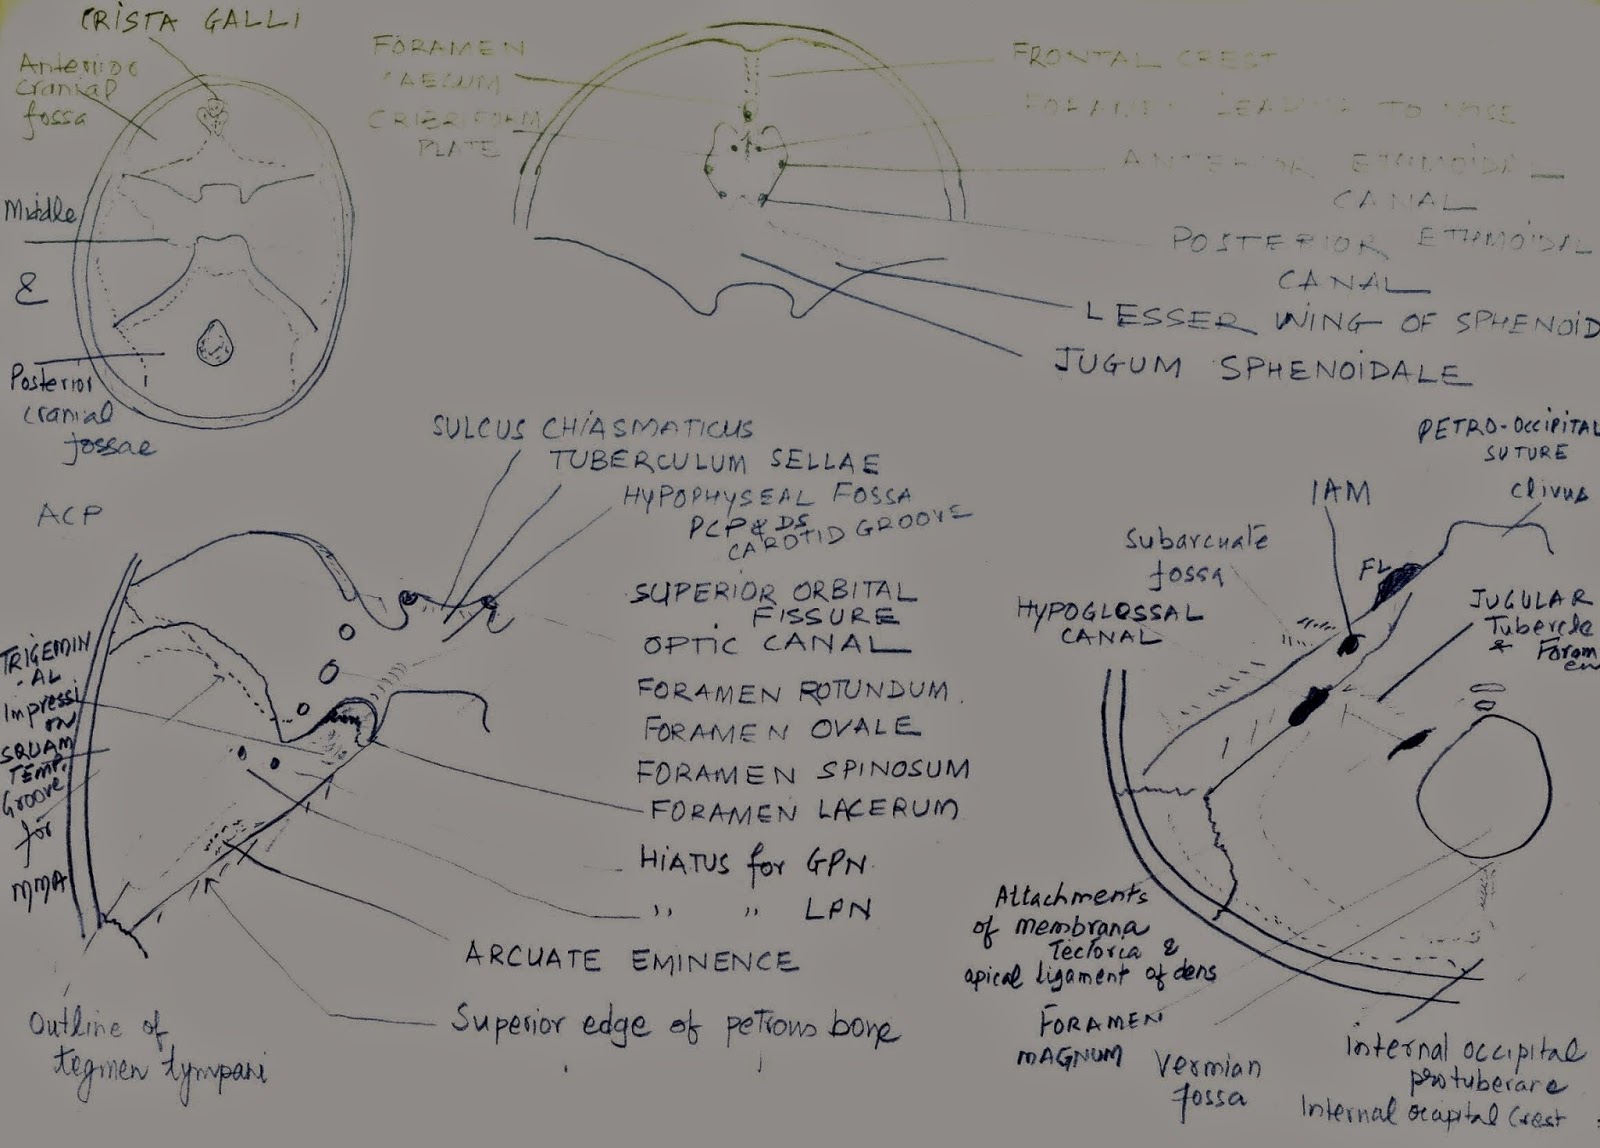 CRISTA GALLI
Anterior
cranial
fossa
Middle
&
Posterior
cranial
fossae
FORAMEN
CAECUM
CRIBRIFORM
PLATE
FRONTAL CREST
FORAMEN LEADING TO NOSE
ANTERIOR ETHMOIDAL
CANAL
POSTERIOR ETHMOIDAL
CANAL
LESSER WING OF SPHENOID
JUGUM SPHENOIDALE
ACP
SULCUS CHIASMATICUS
TUBERCULUM SELLAE
HYPOPHYSEAL FOSSA
PCP & DS
CAROTID GROOVE
SUPERIOR ORBITAL
FISSURE
OPTIC CANAL
FORAMEN ROTUNDUM
FORAMEN OVALE
FORAMEN SPINOSUM
FORAMEN LACERUM
HIATUS for GPN
,, ,, LPN
ARCUATE EMINENCE
Superior edge of petrous bone
TRIGEMIN
-AL
Impressi
on
SQUAM
TEMP.
Groove
for
MMA
Outline of
tegmen tympani
PETRO-OCCIPITAL
SUTURE
IAM
Clivus
Subarcuate
fossa
FL
HYPOGLOSSAL
CANAL
JUGULAR
Tubercle
& Foram
en
Attachments
of membrana
Tectoria &
apical ligament of dens
FORAMEN
MAGNUM
Vermian
fossa
internal occipital
protuberance
Internal occipital Crest